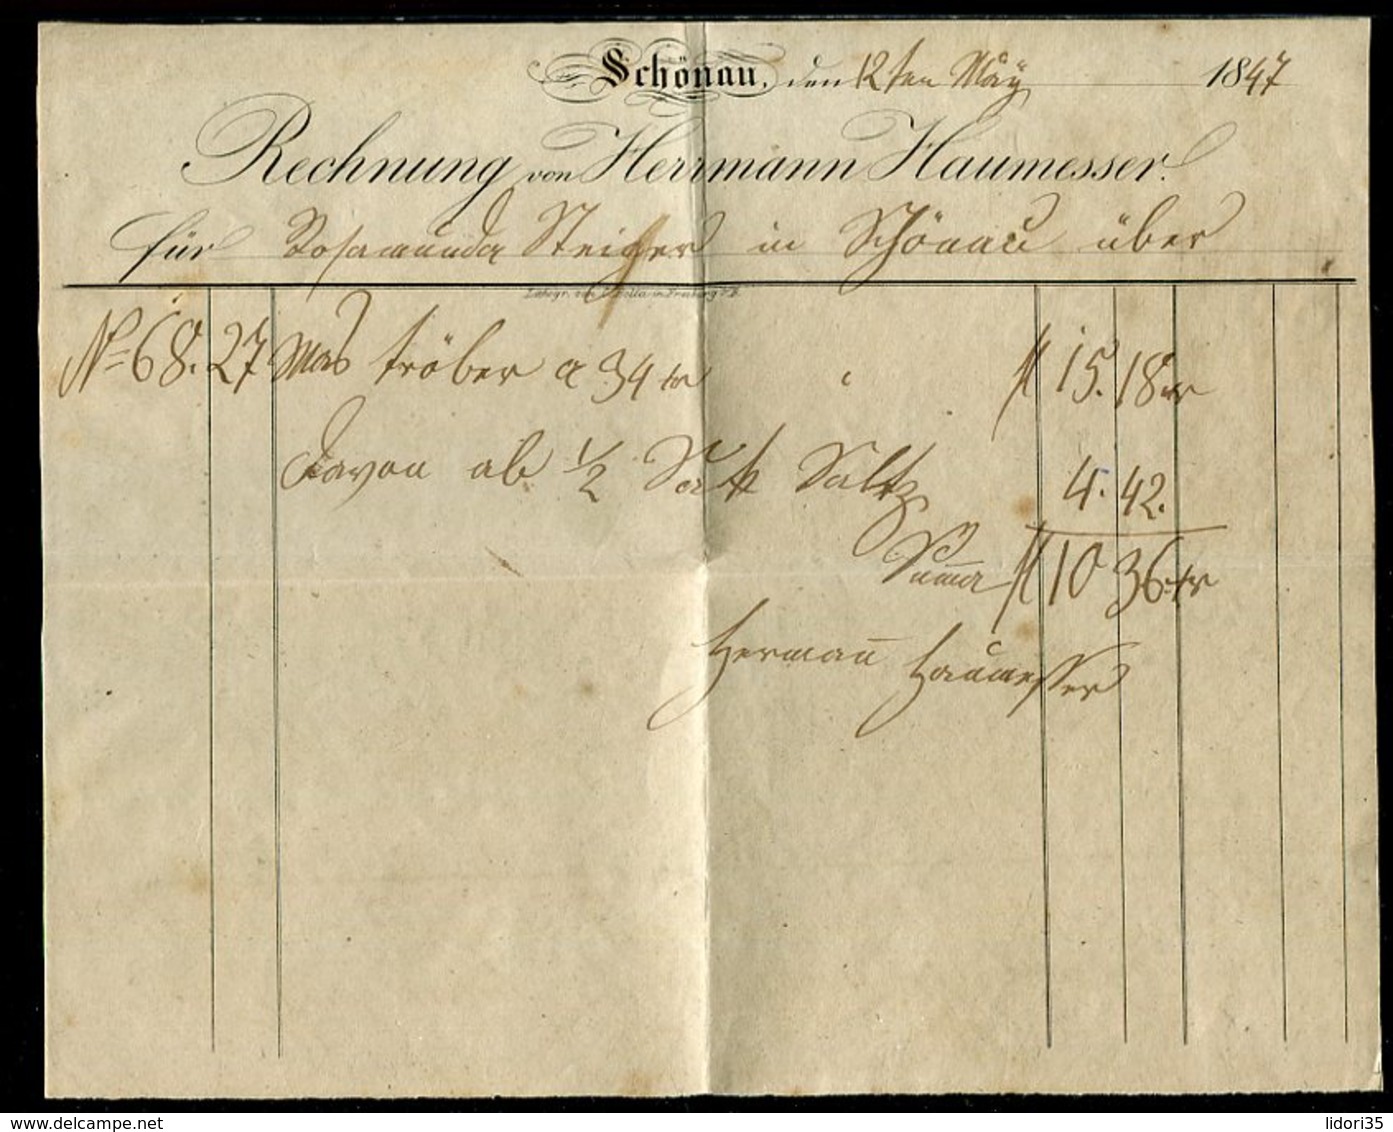 Schönau, den 12ten Mäÿ 1847
Rechnung von Herrmann Haumesser.
für Rosamunda Steiger in Schönau über
Lithogr. in Freiburg i/B.
No 68. 27 Mas tröber a 34 kr fl 15. 18 kr
davon ab 1/2 Sack Saltz 4. 42.
Suma fl 10 36 kr
Hermann Haumesser
lidori35